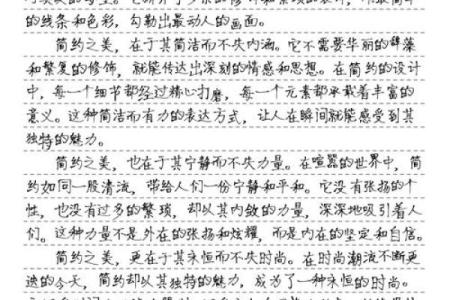 的线条和色彩，勾勒出最动人的画面。
简约之美，在于其简洁而不失内涵。它不需要华丽的辞藻
和繁复的修饰，就能传达出深刻的情感和思想。在简约的设计
中，每一个细节都经过精心打磨，每一个元素都承载着丰富的
意义。这种简洁而有力的表达方式，让人在瞬间就能感受到其
独特的魅力。
简约之美，也在于其宁静而不失力量。在喧嚣的世界中，简
约如同一股清流，带给人们一份宁静和平和。它没有张扬的个
性，也没有过多的繁琐，却以其内敛的力量，深深地吸引着人
们。这种力量不是外在的张扬和炫耀，而是内在的坚定和自信。
简约之美，更在于其永恒而不失时尚。在时尚潮流不断更
迭的今天，简约却以其独特的魅力，成为了一种永恒的时尚。